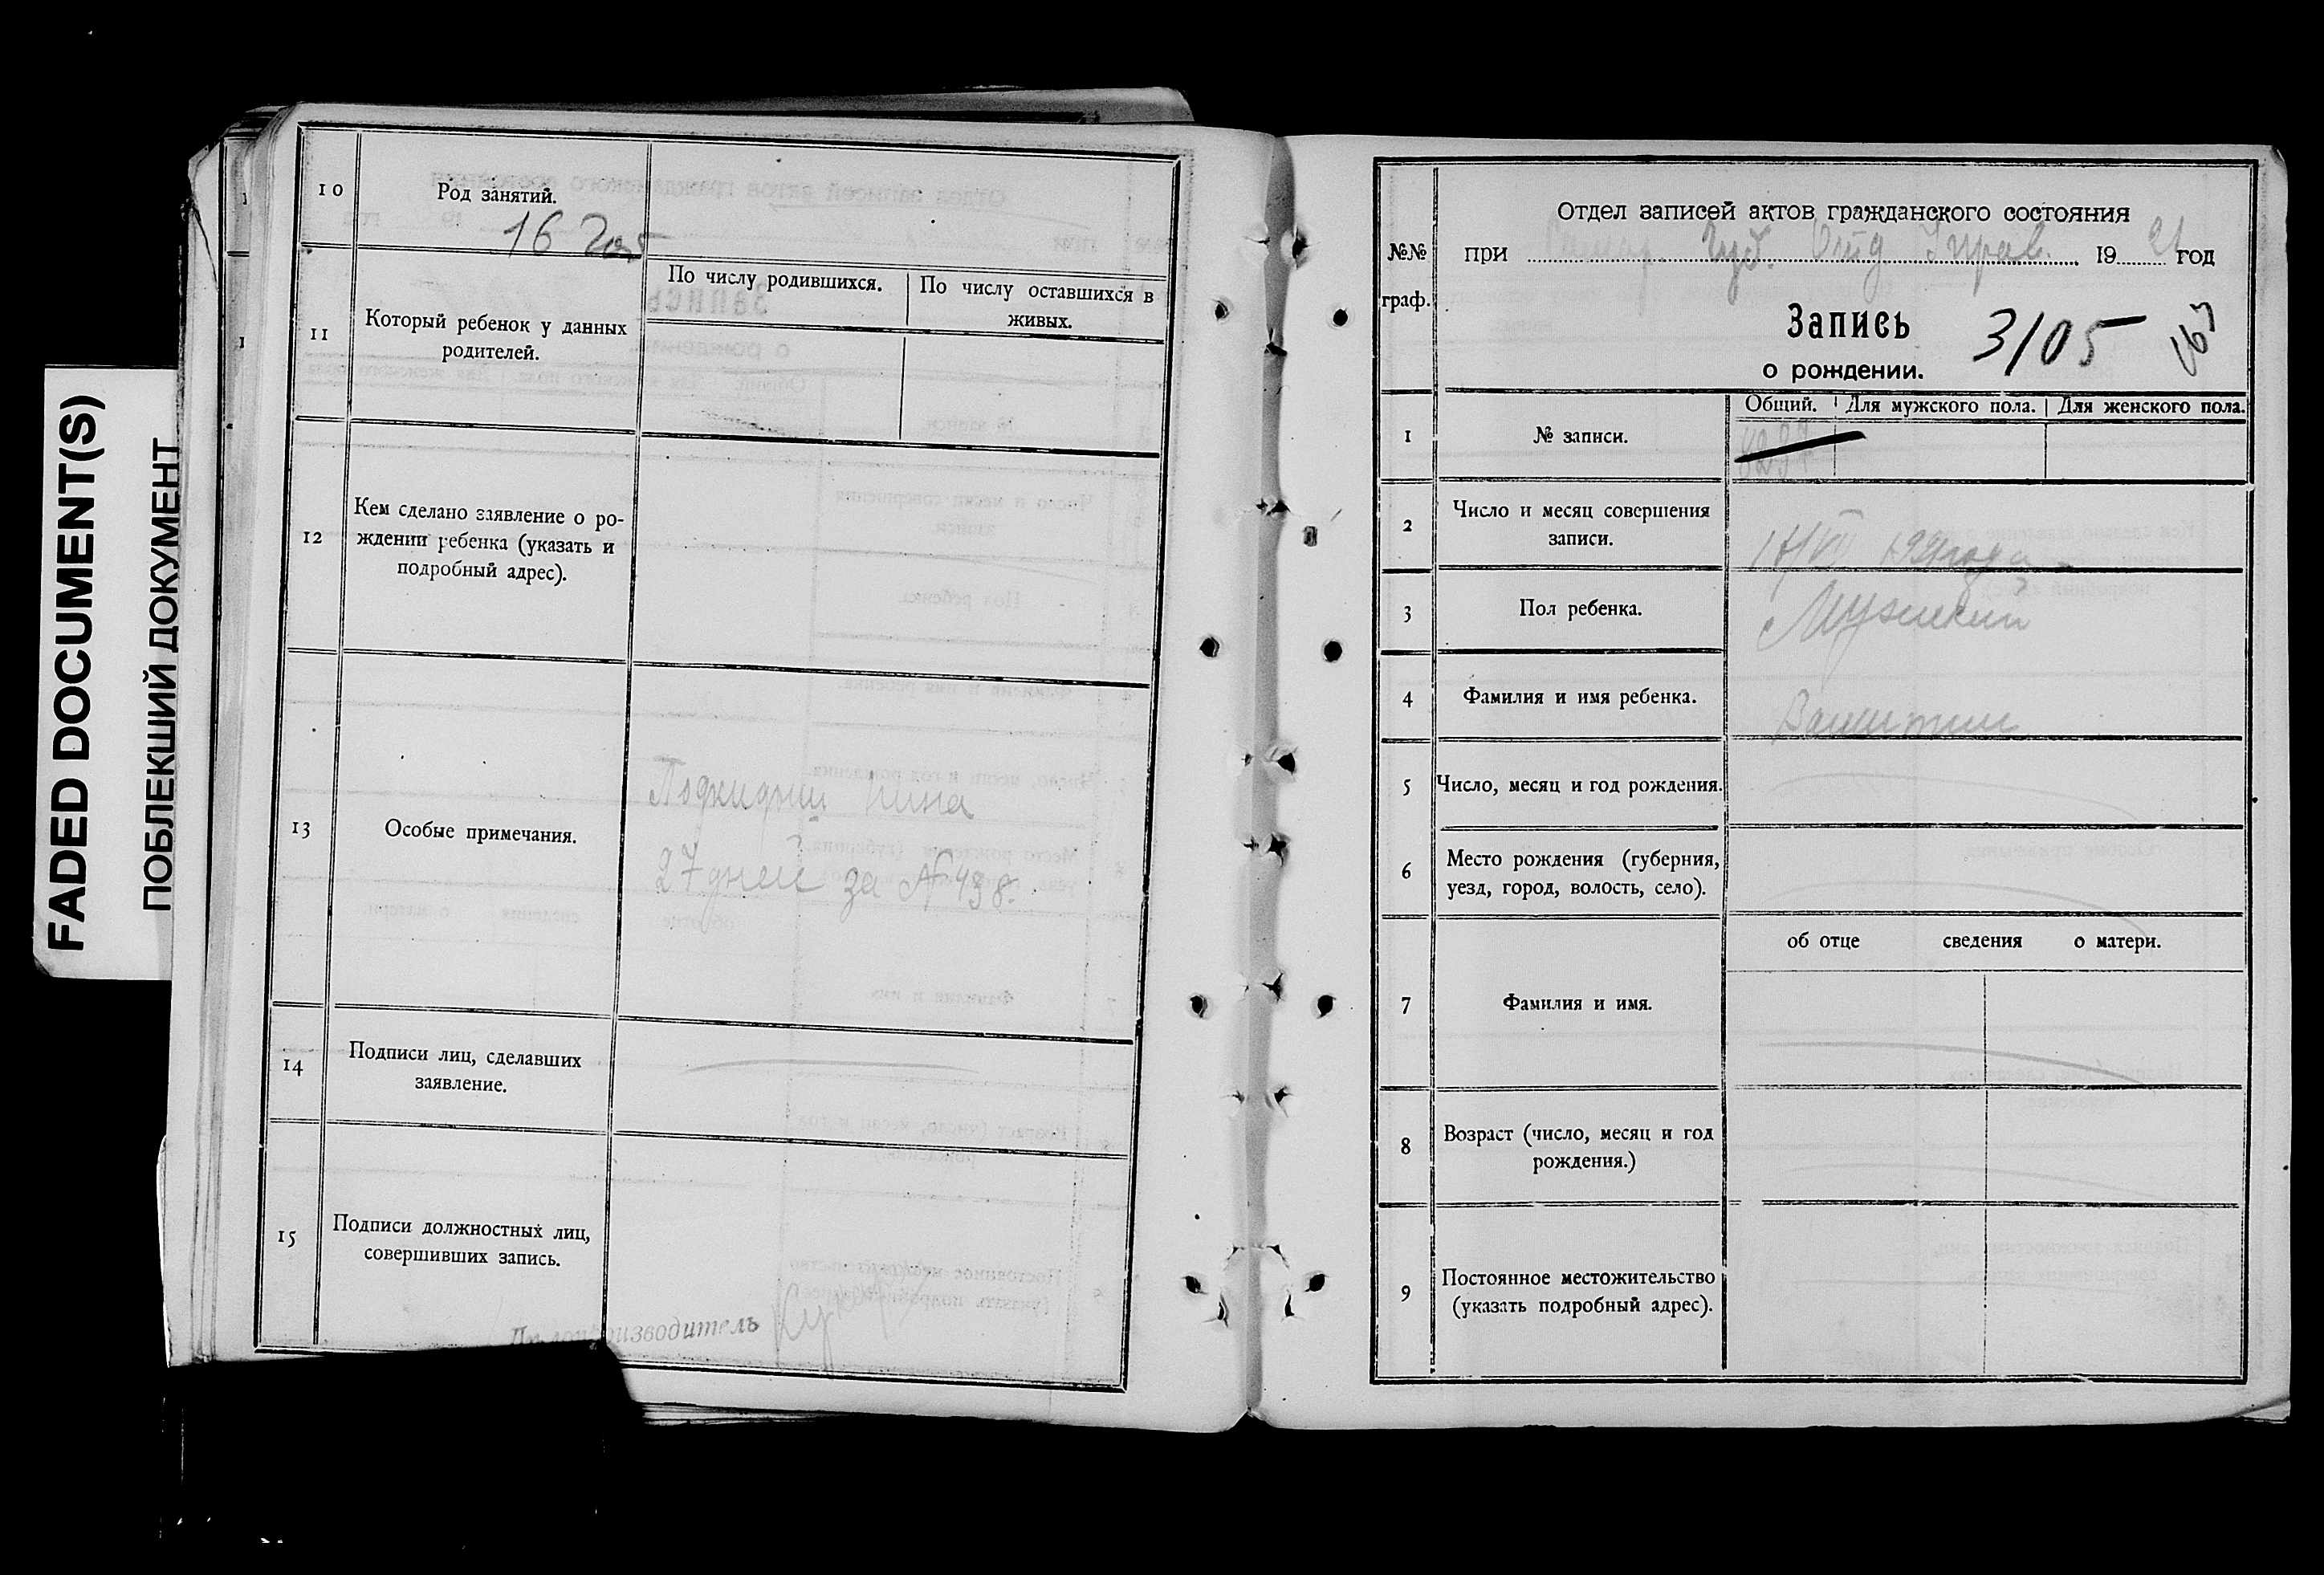 FADED DOCUMENT(S)
ПОБЛЕКШИЙ ДОКУМЕНТ
10
Род занятий.
16
11
Который ребенок у данных
родителей.
По числу родившихся.
По числу оставшихся в
живых.
12
Кем сделано заявление о ро-
ждении ребенка (указать и
подробный адрес).
13
Особые примечания.
Подкидыш Нина
27 дней за № 438.
14
Подписи лиц, сделавших
заявление.
15
Подписи должностных лиц,
совершивших запись.
Делопроизводитель
№№
граф.
Отдел записей актов гражданского состояния
при Самар. Губ. Отд Управ. 1921 год
Запись 3105 163
о рождении.
1
№ записи.
Общий.
Для мужского пола.
Для женского пола.
2
Число и месяц совершения
записи.
1921 года
3
Пол ребенка.
Мужский
4
Фамилия и имя ребенка.
5
Число, месяц и год рождения.
6
Место рождения (губерния,
уезд, город, волость, село).
об отце сведения о матери.
7
Фамилия и имя.
8
Возраст (число, месяц и год
рождения.)
9
Постоянное местожительство
(указать подробный адрес).